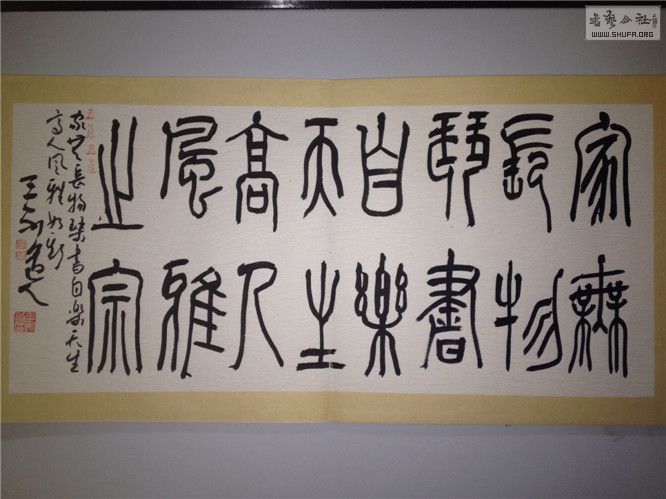 家無
長物
琴書
自樂
天生
高人
風雅
之宗
家無長物琴書自樂天生
高人風雅
书艺公社
WWW.SHUFA.ORG